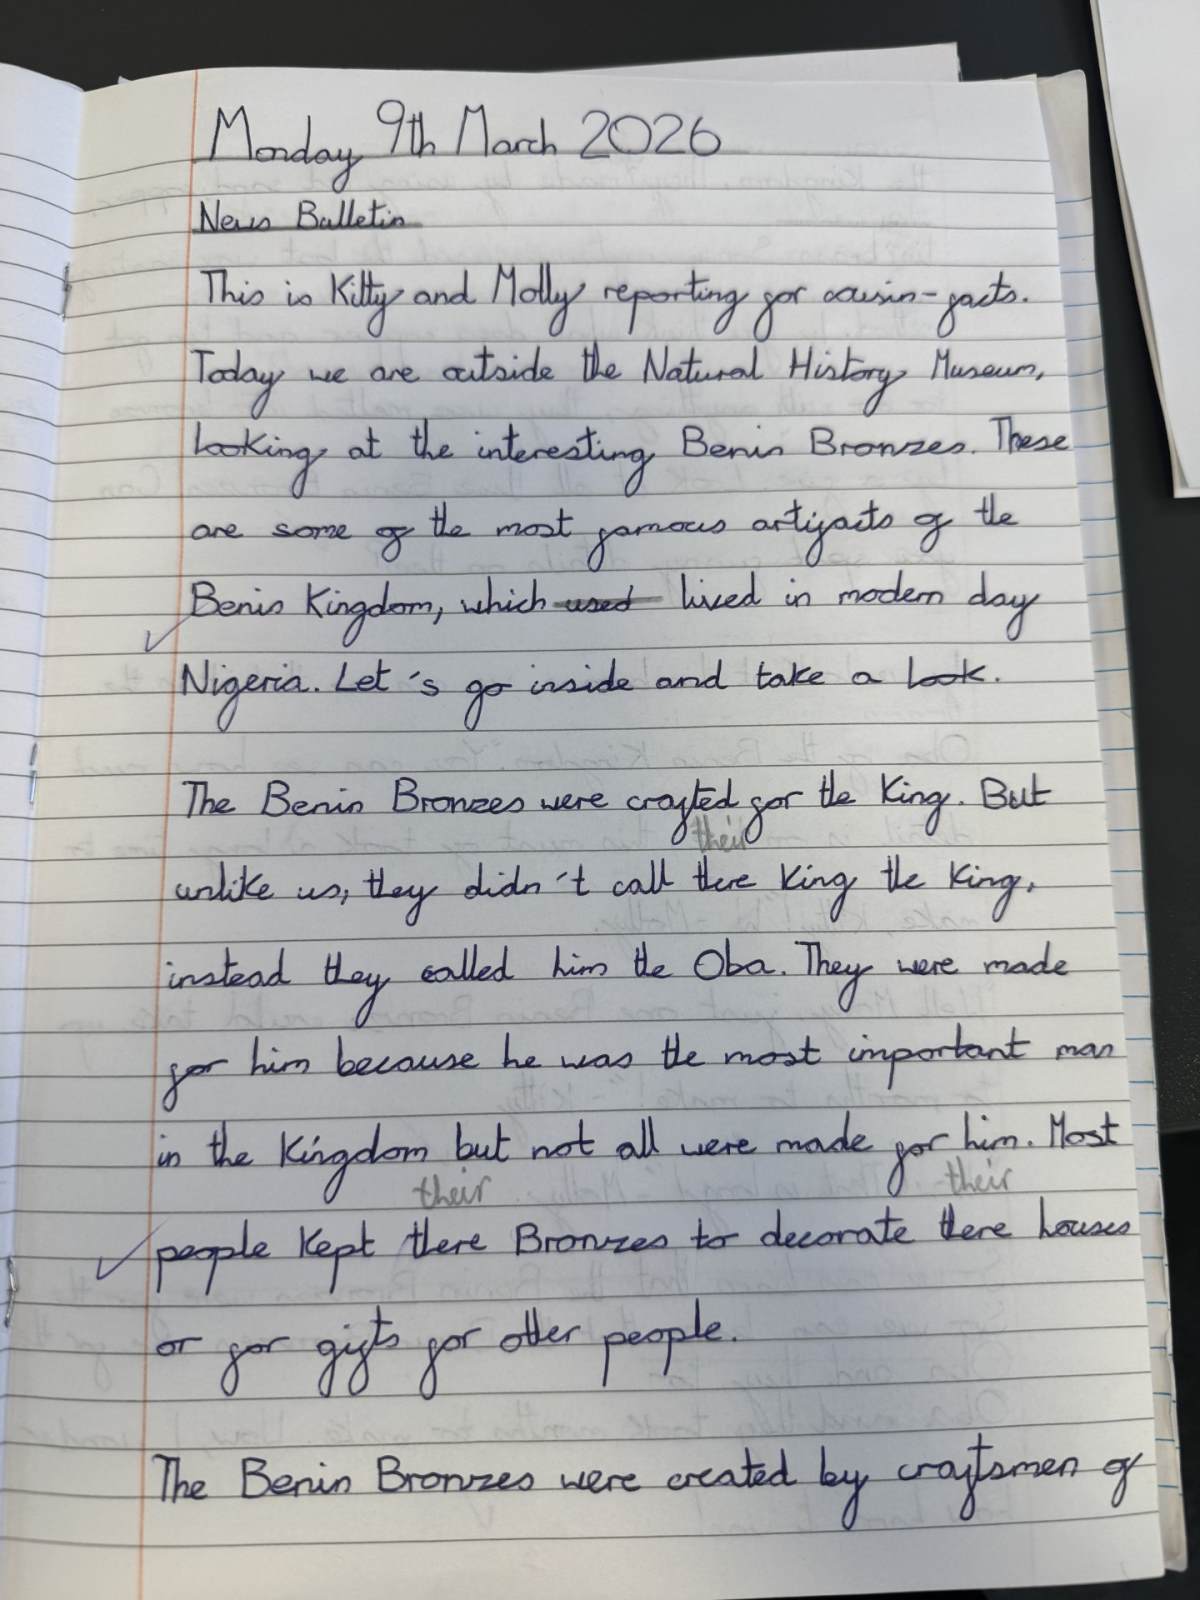 Monday 9th March 2026
News Bulletin
This is Kitty and Molly reporting for cousin-facts.
Today we are outside the Natural History Museum,
looking at the interesting Benin Bronzes. These
are some of the most famous artifacts of the
Benin Kingdom, which used lived in modern day
Nigeria. Let's go inside and take a look.
The Benin Bronzes were crafted for the King. But
their
unlike us, they didn't call there King the King,
instead they called him the Oba. They were made
for him because he was the most important man
in the Kingdom but not all were made for him. Most
their their
people Kept there Bronzes to decorate there houses
or for gifts for other people.
The Benin Bronzes were created by craftsmen of